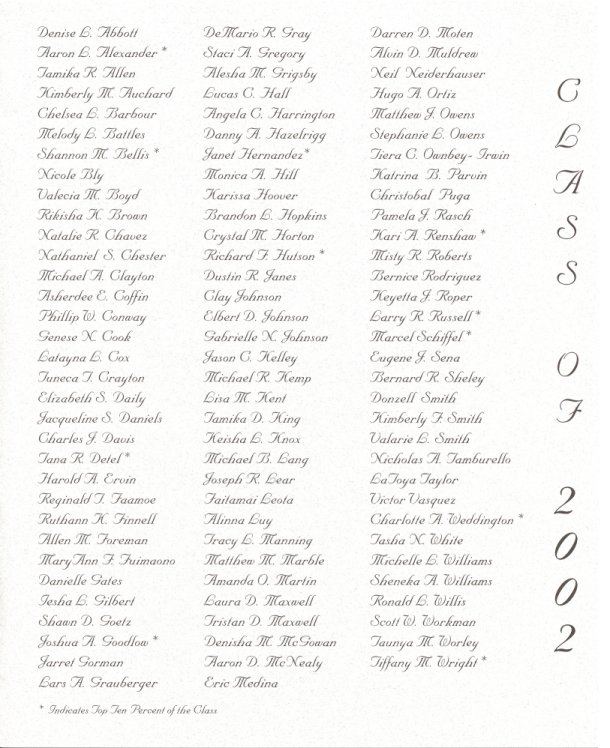 Denise L. Abbott
Aaron L. Alexander *
Tamika R. Allen
Kimberly M. Auchard
Chelsea L. Barbour
Melody L. Battles
Shannon M. Bellis *
Nicole Bly
Valecia M. Boyd
Rikisha K. Brown
Natalie R. Chavez
Nathaniel S. Chester
Michael A. Clayton
Asherdee E. Coffin
Phillip W. Conway
Genese N. Cook
Latayna L. Cox
Tuneca T. Crayton
Elizabeth S. Daily
Jacqueline S. Daniels
Charles J. Davis
Tana R. Detel *
Harold A. Ervin
Reginald T. Faamoe
Ruthann K. Finnell
Allen M. Foreman
MaryAnn F. Fuimaono
Danielle Gates
Iesha L. Gilbert
Shawn D. Goetz
Joshua A. Goodlow *
Jarret Gorman
Lars A. Grauberger
DeMario R. Gray
Staci A. Gregory
Alesha M. Grigsby
Lucas C. Hall
Angela C. Harrington
Danny A. Hazelrigg
Janet Hernandez *
Monica A. Hill
Karissa Hoover
Brandon L. Hopkins
Crystal M. Horton
Richard F. Hutson *
Dustin R. Janes
Clay Johnson
Elbert D. Johnson
Gabrielle N. Johnson
Jason C. Kelley
Michael R. Kemp
Lisa M. Kent
Tamika D. King
Keisha L. Knox
Michael B. Lang
Joseph R. Lear
Taitamai Leota
Alinna Luy
Tracy L. Manning
Matthew M. Marble
Amanda O. Martin
Laura D. Maxwell
Tristan D. Maxwell
Denisha M. McGowan
Aaron D. McNealy
Eric Medina
Darren D. Moten
Alvin D. Muldrew
Neil Neiderhauser
Hugo A. Ortiz
Matthew J. Owens
Stephanie L. Owens
Tiera C. Ownbey- Irwin
Katrina B. Parvin
Christobal Puga
Pamela J. Rasch
Kari A. Renshaw *
Misty R. Roberts
Bernice Rodriguez
Keyetta J. Roper
Larry R. Russell *
Marcel Schiffel *
Eugene J. Sena
Bernard R. Sheley
Donzell Smith
Kimberly F. Smith
Valarie L. Smith
Nicholas A. Tamburello
LaToya Taylor
Victor Vasquez
Charlotte A. Weddington *
Tasha N. White
Michelle L. Williams
Sheneka A. Williams
Ronald L. Willis
Scott W. Workman
Taunya M. Worley
Tiffany M. Wright *
CLASS OF 2002
* Indicates Top Ten Percent of the Class